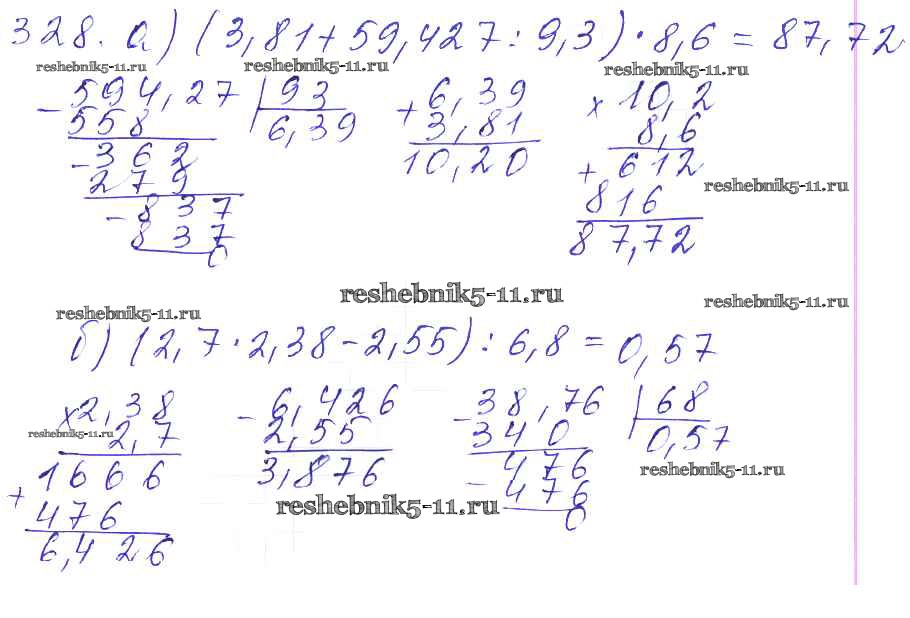 328. а) (3,81+59,427:9,3)·8,6=87,72
reshebnik5-11.ru reshebnik5-11.ru reshebnik5-11.ru
- 594,27 | 93 + 6,39 x 10,2
558 6,39 3,81 8,6
- 362 10,20 + 612
279 816 reshebnik5-11.ru
- 837 87,72
837
0
reshebnik5-11.ru reshebnik5-11.ru
reshebnik5-11.ru
б) (2,7·2,38-2,55):6,8=0,57
x 2,38 - 6,426 - 38,76 | 68
reshebnik5-11.ru 2,7 2,55 340 0,57
1666 3,876 476 reshebnik5-11.ru
+ 476 - 476
6,426 0
reshebnik5-11.ru